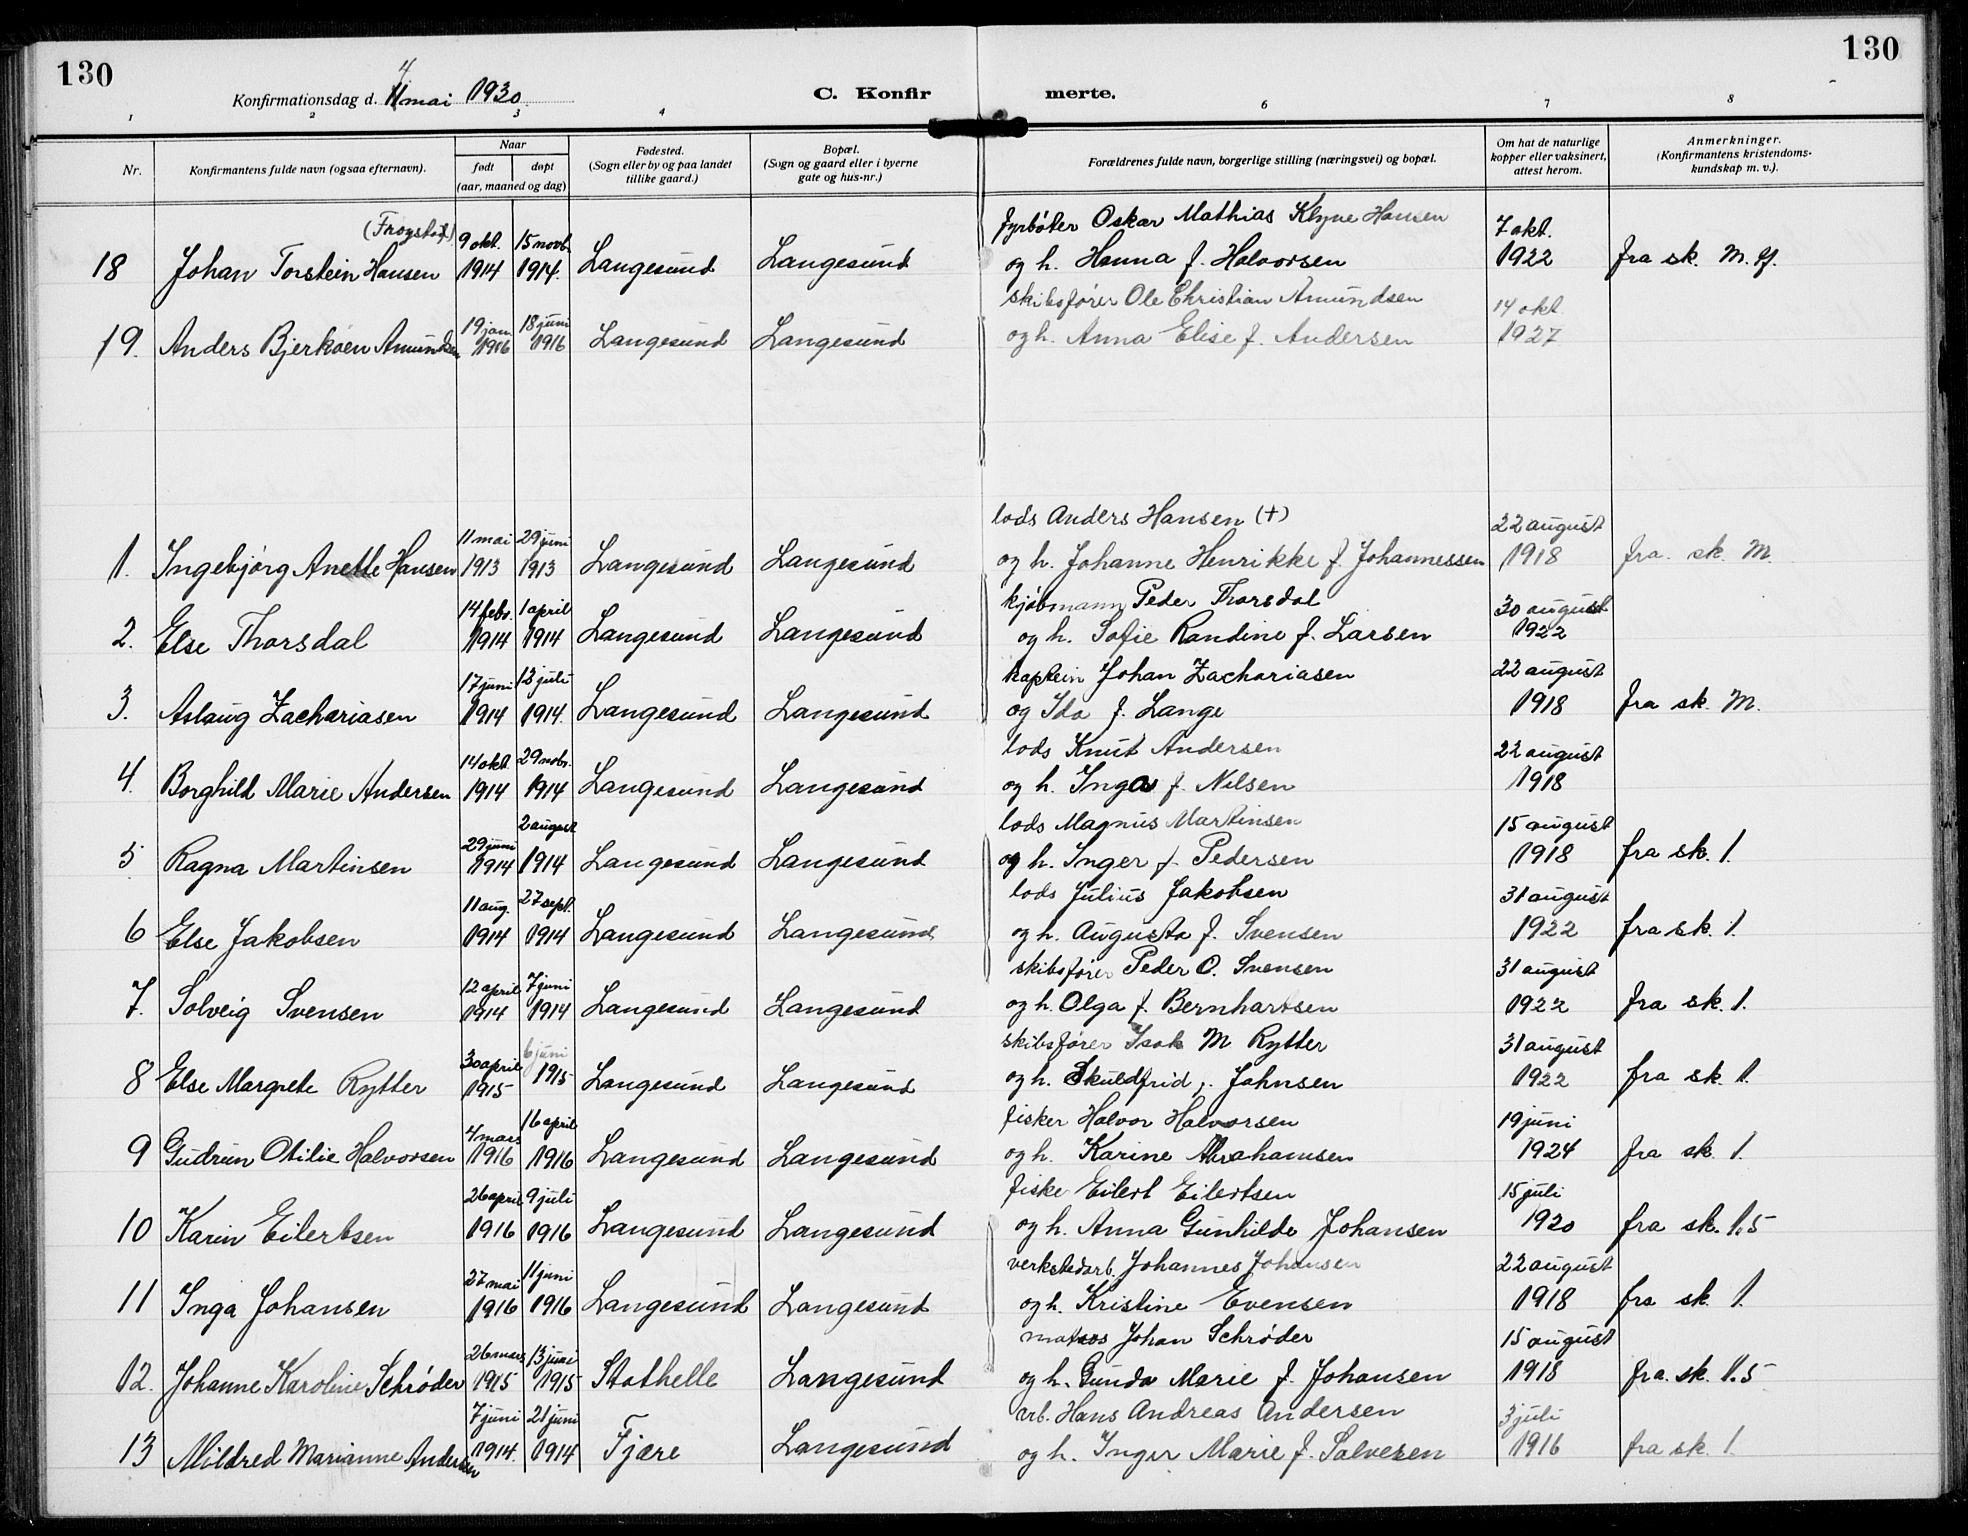 130
130
Konfirmationsdag d. 11 mai 1930
4
C. Konfir merte.
1 2 3 4 6 7 8
Nr.
Konfirmantens fulde navn (ogsaa efternavn).
Naar
født døpt
(aar, maaned og dag)
Fødested.
(Sogn eller by og paa landet
tillike gaard.)
Bopæl.
(Sogn og gaard eller i byerne
gate og hus-nr.)
Forældrenes fulde navn, borgerlige stilling (næringsvei) og bopæl.
Om hat de naturlige
kopper eller vaksinert,
attest herom.
Anmerkninger.
(Konfirmantens kristendoms-
kundskap m. v.).
(Frogstad) 9 okt. 15 novb. fyrbøter Oskar Mathias Klyve Hansen 7 okt.
18 Johan Torstein Hansen 1914 1914. Langesund Langesund og h. Hanna f. Halvorsen 1922 fra sk. M. Y.
19 jan. 18 juni skibsfører Ole Christian Amundsen 14 okt.
19. Anders Bjerkøen Amundsen 1916 1916 Langesund Langesund og h. Anna Elise f. Andersen 1927
11 mai 29 juni lods Anders Hansen (+) 22 august
1. Ingebjørg Anette Hansen 1913 1913 Langesund Langesund og h. Johanne Henrikke f. Johannessen 1918 fra. sk. M.
14 febr. 1 april kjøbmann Peder Thorsdal 30 august
2. Else Thorsdal 1914 1914 Langesund Langesund og h. Sofie Randine f. Larsen 1922
17 juni 12 juli kaptein Johan Zachariasen 22 august
3. Aslaug Zachariasen 1914 1914. Langesund Langesund og Ida f. Lange 1918 fra sk. M.
14 okt. 29 nobr. lods Knut Andersen 22 august
4. Borghild Marie Andersen 1914 1914 Langesund Langesund og h. Inga f. Nilsen 1918
29 juni 2 august lods Magnus Martinsen 15 august
5 Ragna Martinsen 1914 1914 Langesund Langesund og h. Inger f. Pedersen 1918 fra sk. 1.
11 aug. 27 sept. lods Julius Jakobsen 31 august
6 Else Jakobsen 1914 1914 Langesund Langesund og h. Augusta f. Svensen 1922 fra sk. 1.
12 april 7 juni skibsfører Peder O. Svensen 31 august
7. Solveig Svensen 1914 1914 Langesund Langesund og h. Olga f. Bernhartsen 1922 fra sk. 1.
30 april 6 juni skibsfører Isak M Rytter 31 august
8 Else Margrete Rytter 1915 1915 Langesund Langesund og h. Skuldfrid f. Johnsen 1922 fra sk. 1.
4 mars 16 april fisker Halvor Halvorsen 19 juni
9 Gudrun Otilie Halvorsen 1916 1916 Langesund Langesund og h. Karine Abrahamsen 1924 fra sk 1.
26 april 9 juli fiske Eilert Eilertsen 15 juli
10 Karin Eilertsen 1916 1916 Langesund Langesund og h. Anna Gunhilde Johansen 1920 fra sk. 1.5
27 mai 11 juni verkstedarb. Johannes Johansen 22 august
11 Inga Johansen 1916 1916 Langesund Langesund og h. Kristine Evensen 1918 fra sk. 1.
26 mars 13 juni matros Johan Schrøder 15 august
12. Johanne Karoline Schrøder 1915 1915 Stathelle Langesund og h. Gunda Marie f. Johansen 1918 fra. sk. 1.5
7 juni 21 juni arb. Hans Andreas Andersen 3 juli
13 Mildred Marianne Andersen 1914. 1914 Fjære Langesund og h. Inger Marie f. Salvesen 1916 fra sk. 1